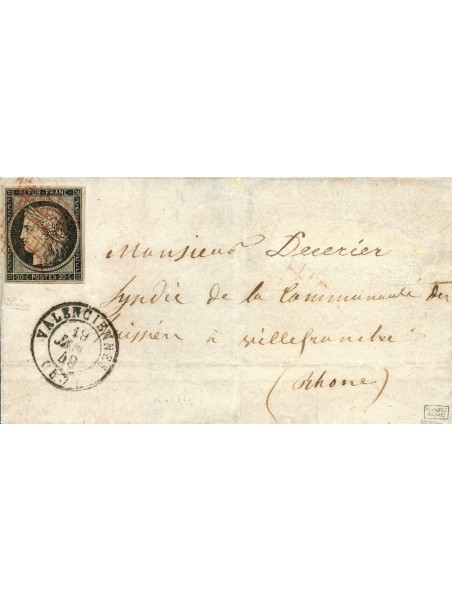 REPUB. FRANC.
20 C POSTES 20 C
Monsieur Decerier
Syndic de la Communauté des
huissiers à Villefranche
(Rhone)
VALENCIENNES
19
JANV
49
(57)